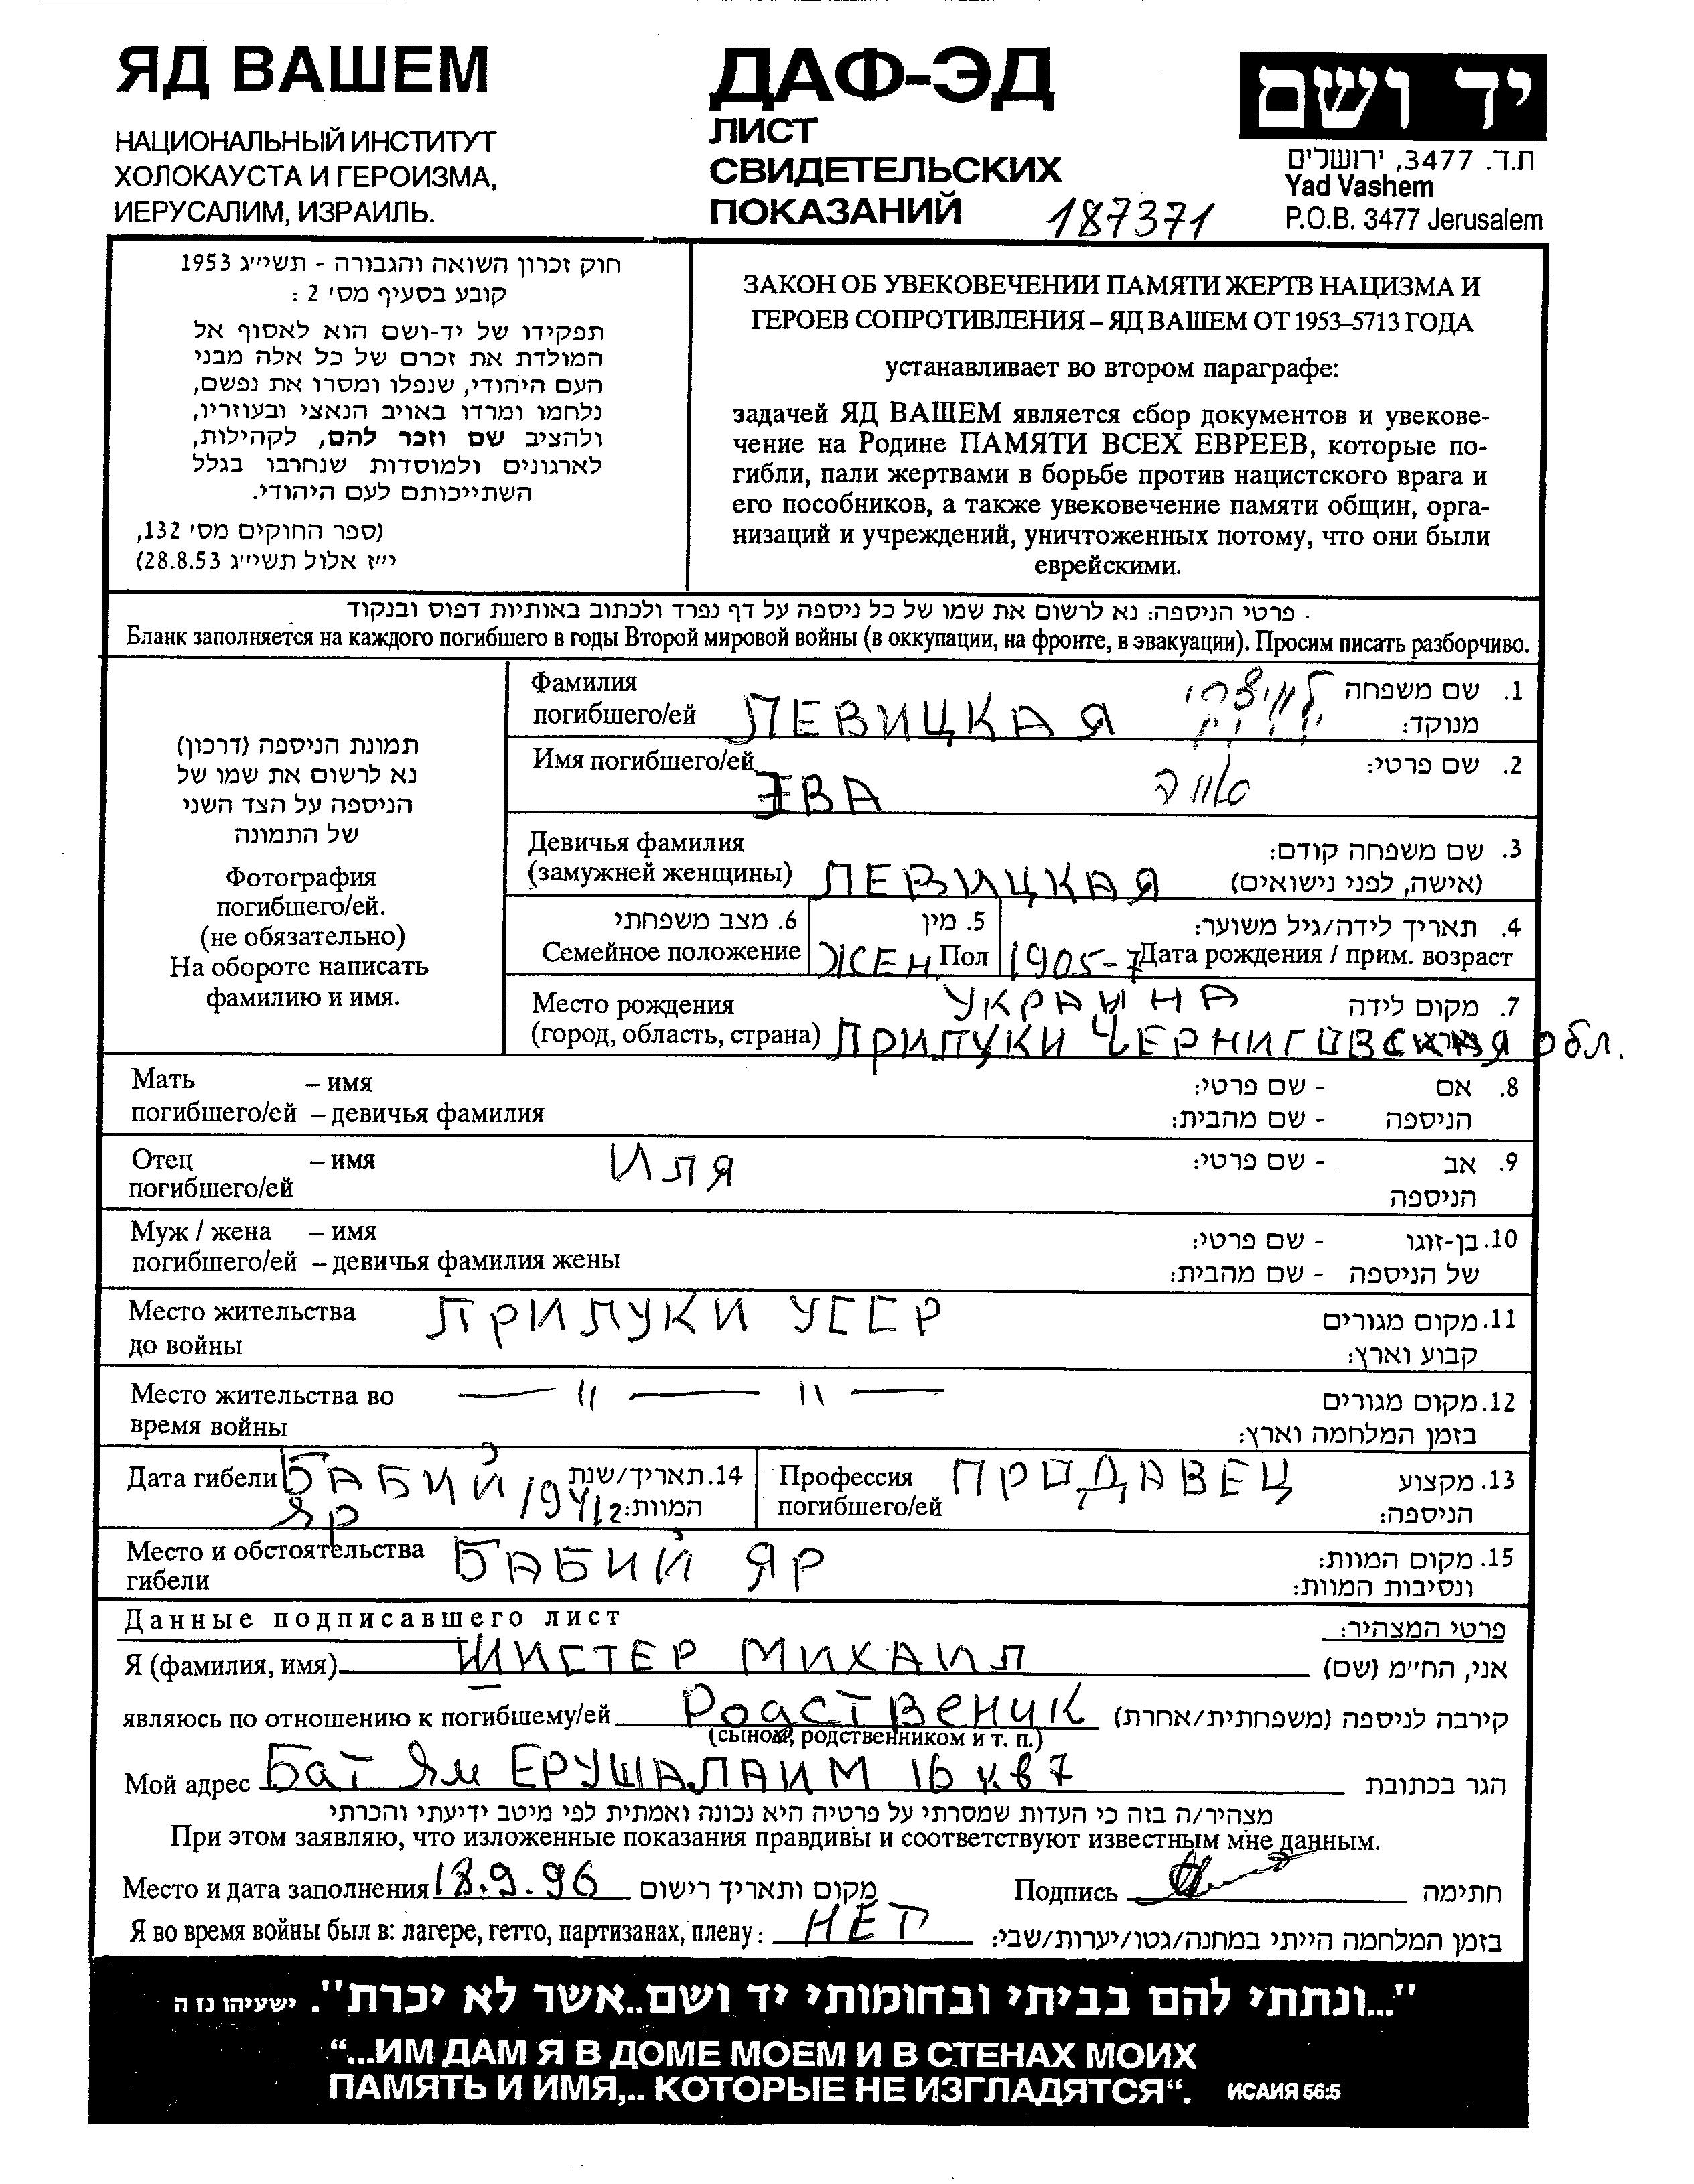 ЯД ВАШЕМ
НАЦИОНАЛЬНЫЙ ИНСТИТУТ
ХОЛОКАУСТА И ГЕРОИЗМА,
ИЕРУСАЛИМ, ИЗРАИЛЬ.
ДАФ-ЭД
ЛИСТ
СВИДЕТЕЛЬСКИХ
ПОКАЗАНИЙ 187371
יד ושם
ת.ד. 3477, ירושלים
Yad Vashem
P.O.B. 3477 Jerusalem
חוק זכרון השואה והגבורה - תשי״ג 1953
קובע בסעיף מס׳ 2 :
תפקידו של יד-ושם הוא לאסוף אל
המולדת את זכרם של כל אלה מבני
העם היהודי, שנפלו ומסרו את נפשם,
נלחמו ומרדו באויב הנאצי ובעוזריו,
ולהציב שם וזכר להם, לקהילות,
לארגונים ולמוסדות שנחרבו בגלל
השתייכותם לעם היהודי.
(ספר החוקים מס׳ 132,
י״ז אלול תשי״ג 28.8.53)
ЗАКОН ОБ УВЕКОВЕЧЕНИИ ПАМЯТИ ЖЕРТВ НАЦИЗМА И
ГЕРОЕВ СОПРОТИВЛЕНИЯ – ЯД ВАШЕМ ОТ 1953–5713 ГОДА
устанавливает во втором параграфе:
задачей ЯД ВАШЕМ является сбор документов и увекове-
чение на Родине ПАМЯТИ ВСЕХ ЕВРЕЕВ, которые по-
гибли, пали жертвами в борьбе против нацистского врага и
его пособников, а также увековечение памяти общин, орга-
низаций и учреждений, уничтоженных потому, что они были
еврейскими.
פרטי הניספה: נא לרשום את שמו של כל ניספה על דף נפרד ולכתוב באותיות דפוס ובנקוד
Бланк заполняется на каждого погибшего в годы Второй мировой войны (в оккупации, на фронте, в эвакуации). Просим писать разборчиво.
תמונת הניספה (דרכון)
נא לרשום את שמו של
הניספה על הצד השני
של התמונה
Фотография
погибшего/ей.
(не обязательно)
На обороте написать
фамилию и имя.
Фамилия
погибшего/ей ЛЕВИЦКАЯ
1. שם משפחה
מנוקד:
Имя погибшего/ей ЭВА
2. שם פרטי: אווה
Девичья фамилия
(замужней женщины) ЛЕВИЦКАЯ
3. שם משפחה קודם:
(אישה, לפני נישואים)
6. מצב משפחתי
Семейное положение
5. מין
ЖЕН Пол
4. תאריך לידה/גיל משוער:
1905-7 Дата рождения / прим. возраст
Место рождения УКРАИНА
(город, область, страна) ПРИЛУКИ ЧЕРНИГОВСКАЯ обл.
7. מקום לידה
Мать – имя
погибшего/ей – девичья фамилия
8. אם - שם פרטי:
הניספה - שם מהבית:
Отец – имя ИЛЯ
погибшего/ей
9. אב - שם פרטי:
הניספה
Муж / жена – имя
погибшего/ей – девичья фамилия жены
10. בן-זוגו - שם פרטי:
של הניספה - שם מהבית:
Место жительства ПРИЛУКИ УССР
до войны
11. מקום מגורים
קבוע וארץ:
Место жительства во — 〃 — 〃 —
время войны
12. מקום מגורים
בזמן המלחמה וארץ:
Дата гибели БАБИЙ
ЯР 1941/2
14. תאריך/שנת
המוות:
Профессия ПРОДАВЕЦ
погибшего/ей
13. מקצוע
הניספה:
Место и обстоятельства БАБИЙ ЯР
гибели
15. מקום המוות:
ונסיבות המוות:
Данные подписавшего лист
פרטי המצהיר:
Я (фамилия, имя) ШИСТЕР МИХАИЛ אני, הח״מ (שם)
являюсь по отношению к погибшему/ей Родственик קירבה לניספה (משפחתית/אחרת)
(сыном, родственником и т. п.)
Мой адрес Бат Ям ЕРУШАЛАИМ 16 кв 7 הגר בכתובת
מצהיר/ה בזה כי העדות שמסרתי על פרטיה היא נכונה ואמתית לפי מיטב ידיעתי והכרתי
При этом заявляю, что изложенные показания правдивы и соответствуют известным мне данным.
Место и дата заполнения 18.9.96 מקום ותאריך רישום Подпись חתימה
Я во время войны был в: лагере, гетто, партизанах, плену: НЕТ בזמן המלחמה הייתי במחנה/גטו/יערות/שבי:
"...ונתתי להם בביתי ובחומותי יד ושם..אשר לא יכרת". ישעיהו נז ה
“...ИМ ДАМ Я В ДОМЕ МОЕМ И В СТЕНАХ МОИХ
ПАМЯТЬ И ИМЯ,.. КОТОРЫЕ НЕ ИЗГЛАДЯТСЯ“. ИСАИЯ 56:5